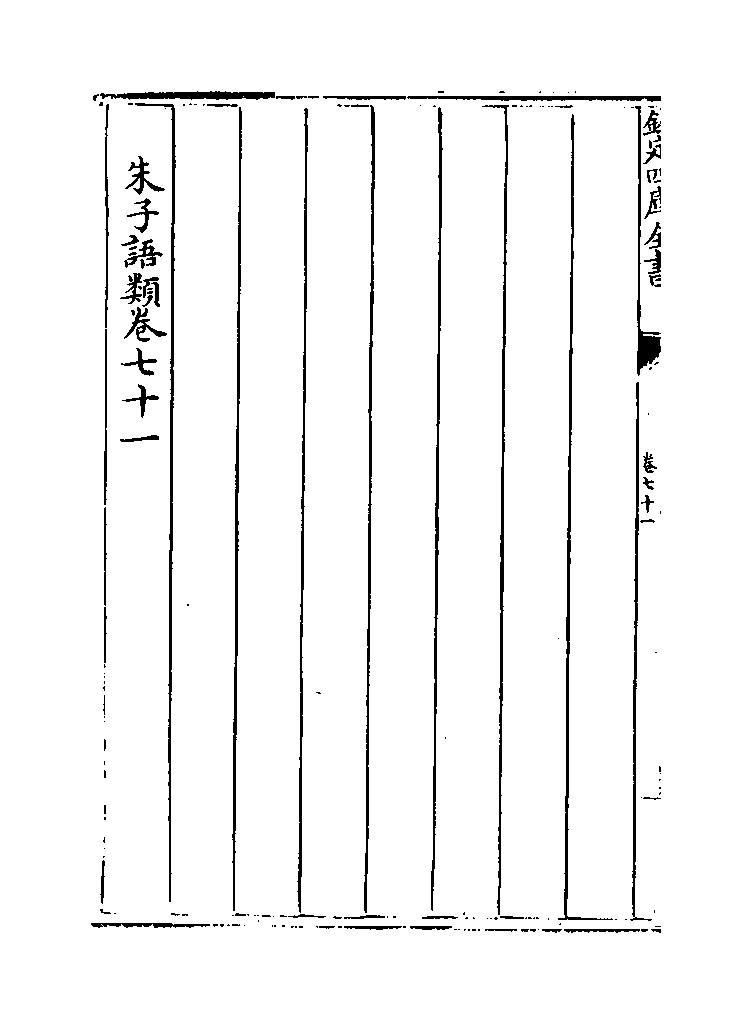 欽定四庫全書
卷七十一
朱子語類卷七十一